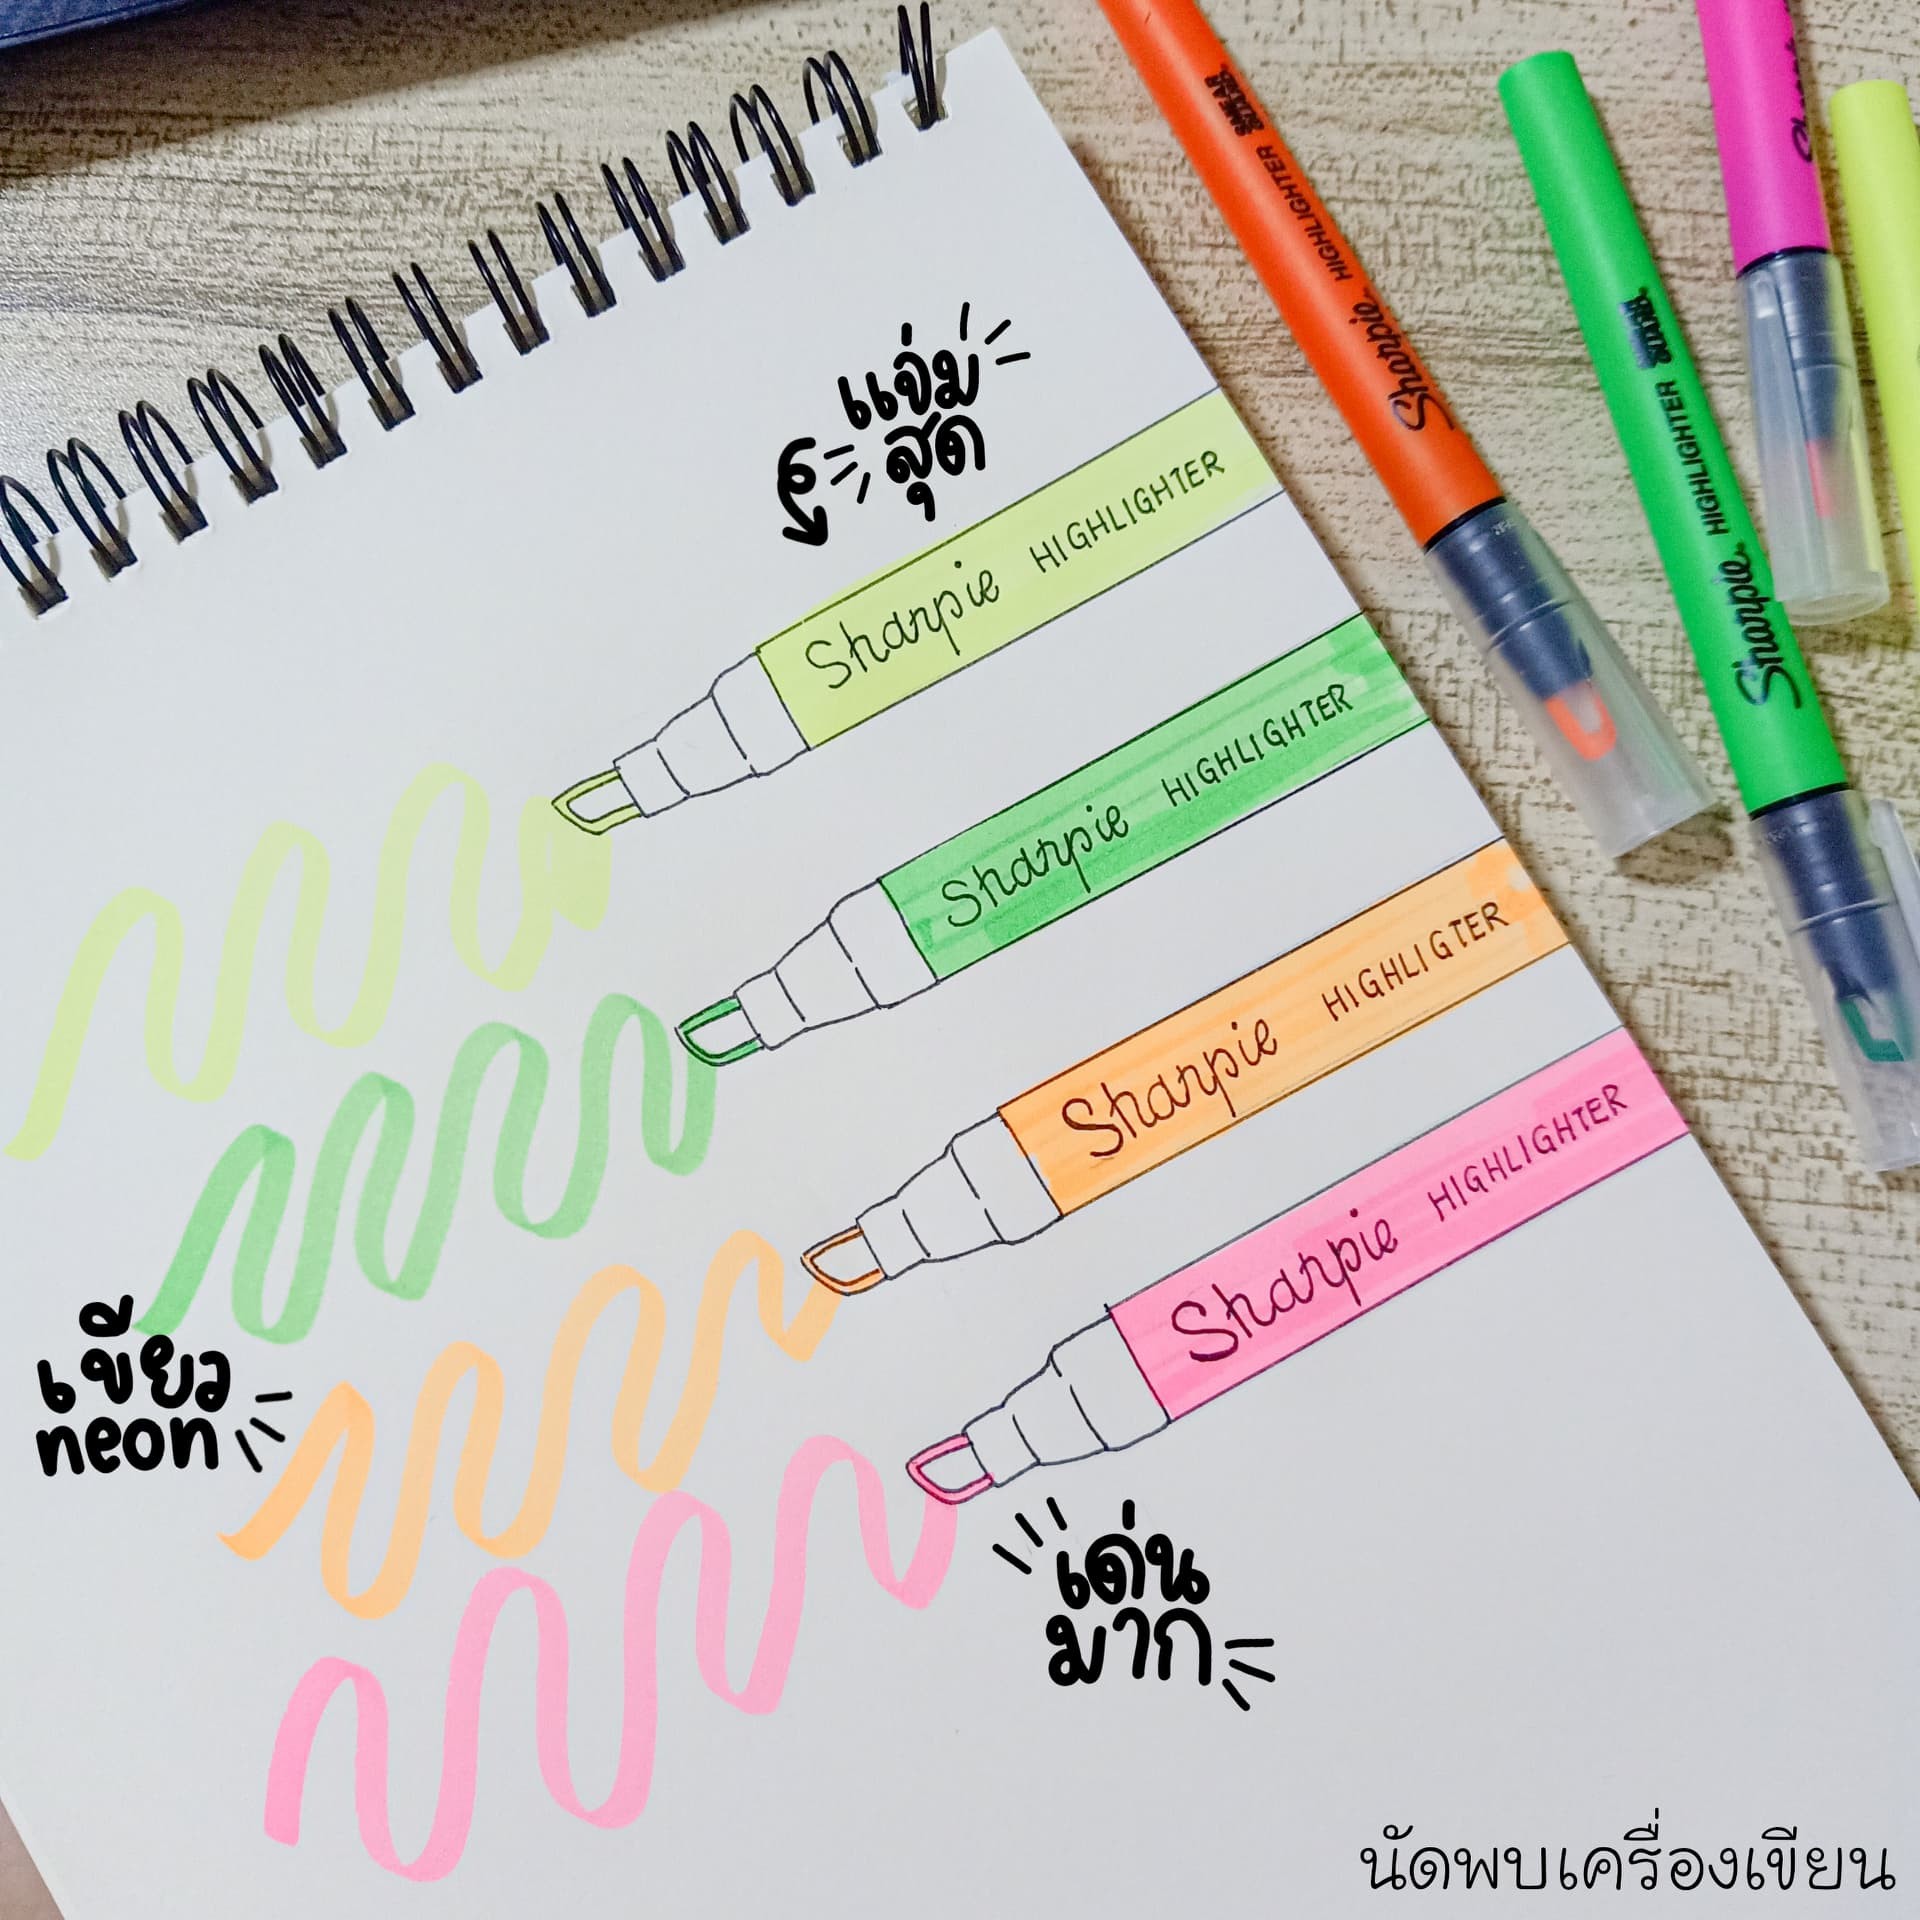 แจ่ม
สุด
Sharpie HIGHLIGHTER
Sharpie HIGHLIGHTER
Sharpie HIGHLIGTER
Sharpie HIGHLIGHTER
เขียว
neon
เด่น
มาก
Sharpie HIGHLIGHTER SMEAR GUARD
Sharpie HIGHLIGHTER SMEAR GUARD
นัดพบเครื่องเขียน